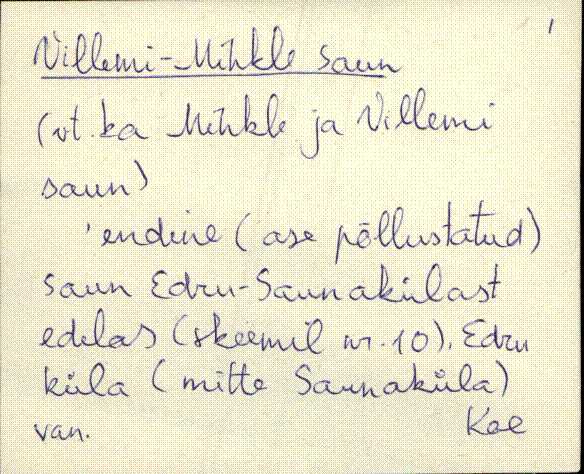 Villemi-Mihkle saun
(vt. ka Mihkle ja Villemi
saun)
'endine (ase põllustatud)
saun Edru-Saunakülast
edelas (skeemil nr. 10). Edru
küla (mitte Saunaküla)
van. Koe